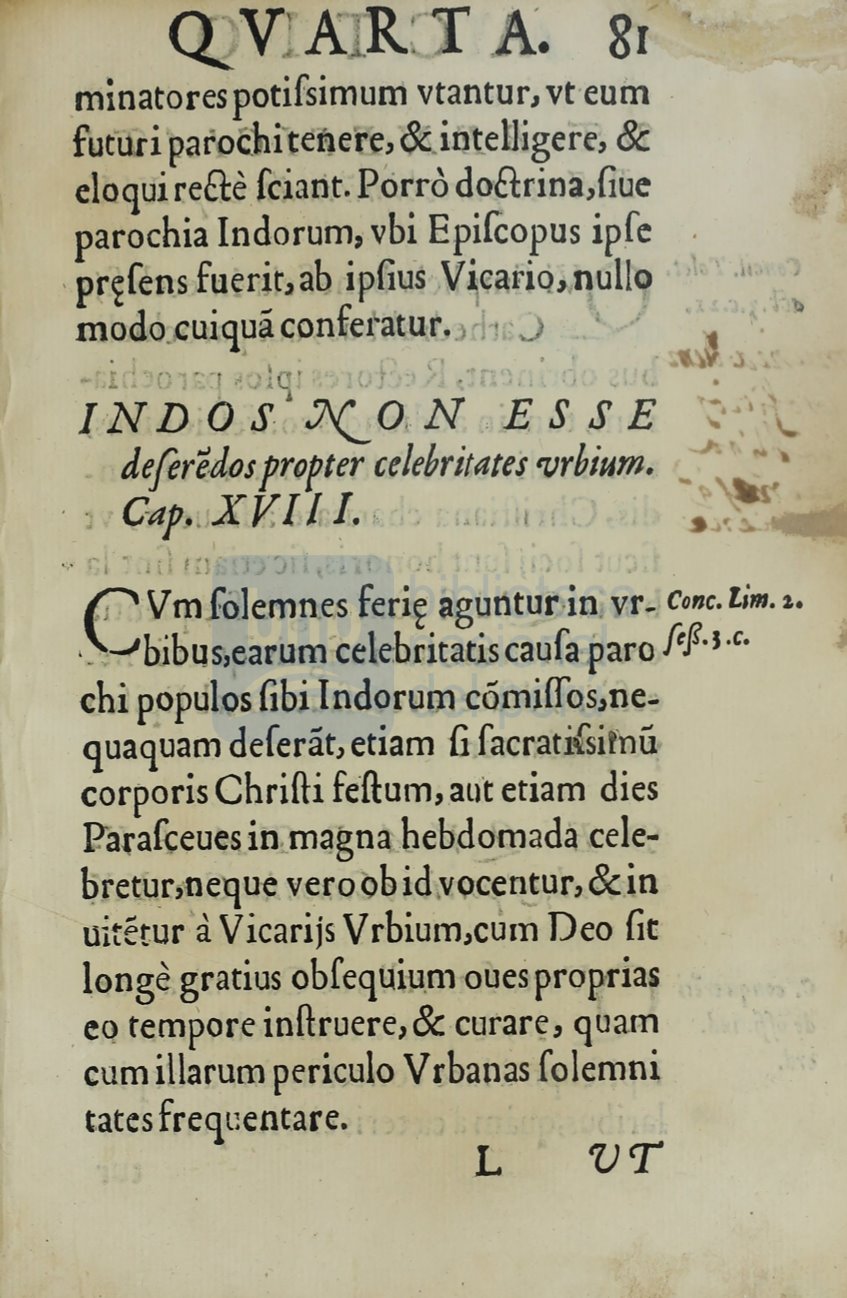 QVARTA. 81
minatores potiſsimum vtantur, vt eum
futuri parochi tenere, & intelligere, &
eloqui rectè ſciant. Porrò doctrina, ſiue
parochia Indorum, vbi Epiſcopus ipſe
pręſens fuerit, ab ipſius Vicario, nullo
modo cuiquã conferatur.
INDOS NON ESSE
deſerẽdos propter celebritates vrbium.
Cap. XVIII.
CVm ſolemnes ferię aguntur in vr- Conc. Lim. 2.
bibus, earum celebritatis cauſa paro ſeß. 3. c.
chi populos ſibi Indorum cõmiſſos, ne-
quaquam deſerãt, etiam ſi ſacratiſsimũ
corporis Chriſti feſtum, aut etiam dies
Paraſceues in magna hebdomada cele-
bretur, neque vero ob id vocentur, & in
uitẽtur à Vicarijs Vrbium, cum Deo ſit
longè gratius obſequium oues proprias
eo tempore inſtruere, & curare, quam
cum illarum periculo Vrbanas ſolemni
tates frequentare.
L VT